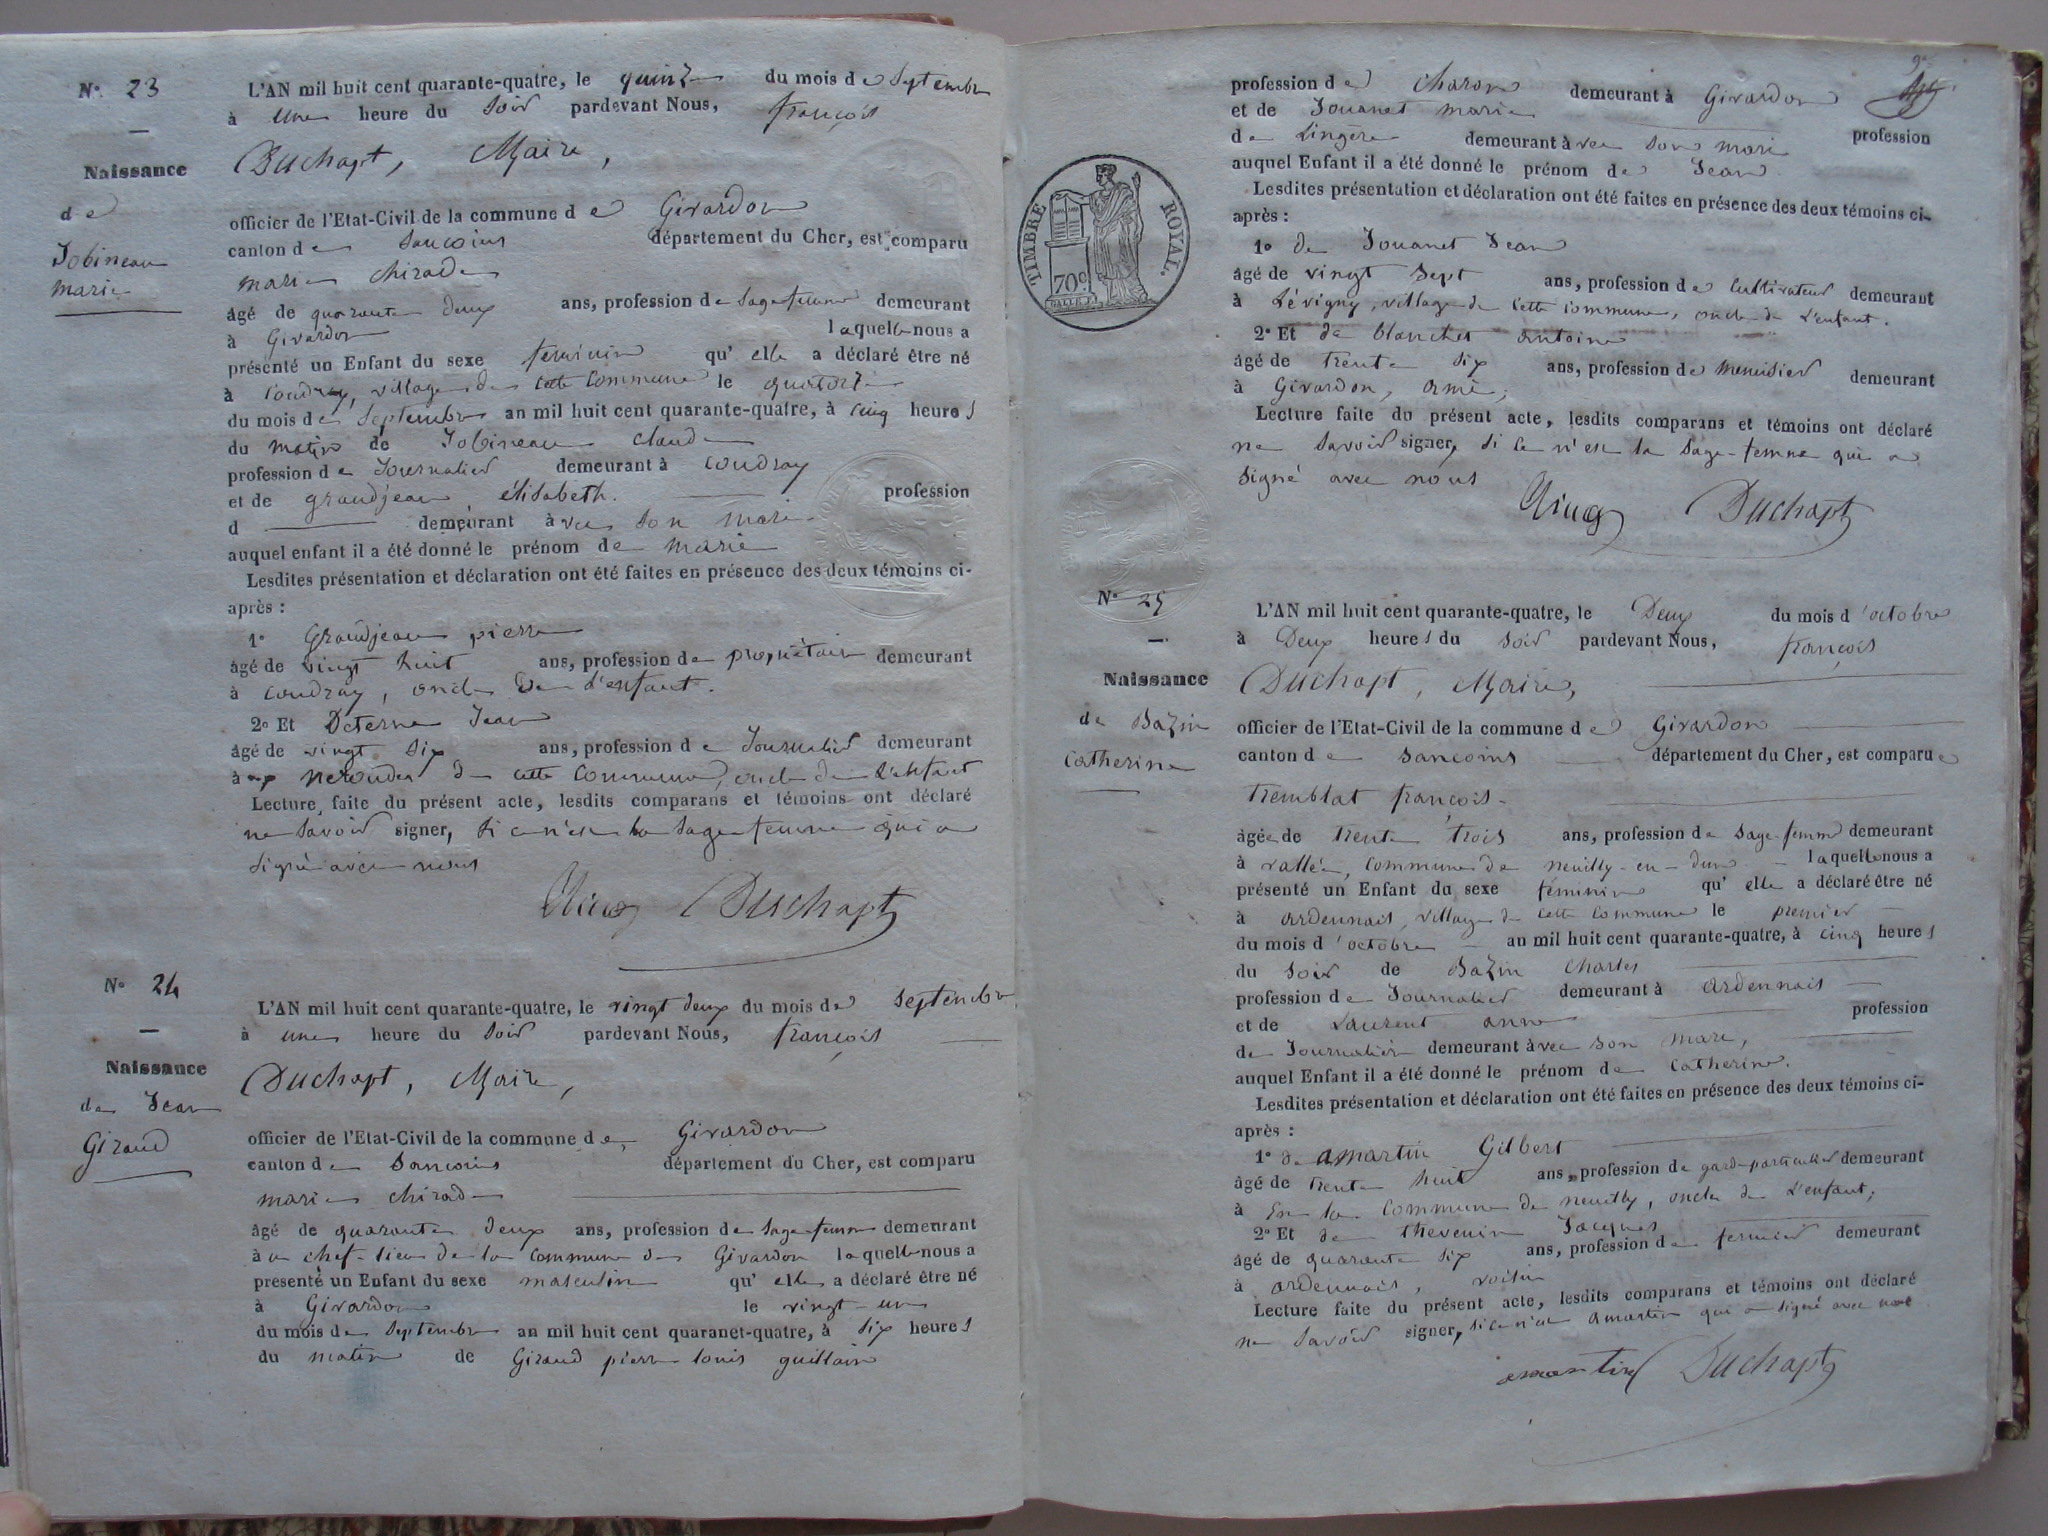 N° 23
Naissance
de
Jobineau
marie
L'AN mil huit cent quarante-quatre, le quinze du mois de Septembre
à une heure du Soir pardevant Nous, françois
Duchapt, Maire,
officier de l'Etat-Civil de la commune de Givardon
canton de Sancoins département du Cher, est comparu
marie chirade
âgé de quarante deux ans, profession de Sage femme demeurant
à Givardon laquelle nous a
présenté un Enfant du sexe feminin qu'elle a déclaré être né
à Coudray, village de cette Commune le quatorze
du mois de Septembre an mil huit cent quarante-quatre, à cinq heures
du matin de Jobineau claude
profession de Journalier demeurant à coudray
et de grandjean élisabeth. profession
d demeurant avec Son mari
auquel enfant il a été donné le prénom de marie
Lesdites présentation et déclaration ont été faites en présence des deux témoins ci-
après :
1° Grandjean pierre
âgé de vingt huit ans, profession de propriétaire demeurant
à coudray, oncle de l'enfant.
2° Et Deterne Jean
âgé de vingt Six ans, profession de Journalier demeurant
à nerondes de cette Commune, oncle de l'enfant
Lecture faite du présent acte, lesdits comparans et témoins ont déclaré
ne Savoir signer, Si ce n'est la Sage femme qui a
Signé avec nous
Duchapt
N° 24
Naissance
de Jean
Giraud
L'AN mil huit cent quarante-quatre, le vingt deux du mois de Septembre
à une heure du Soir pardevant Nous, françois
Duchapt, Maire,
officier de l'Etat-Civil de la commune de Givardon
canton de Sancoins département du Cher, est comparu
marie chirade
âgé de quarante deux ans, profession de Sage femme demeurant
à au chef-lieu de la Commune de Givardon laquelle nous a
presenté un Enfant du sexe masculin qu'elle a déclaré être né
à Givardon le vingt-un
du mois de Septembre an mil huit cent quaranet-quatre, à Six heures
du matin de Giraud pierre louis guillain
profession de Charon demeurant à Givardon
et de Jouanet marie profession
de Lingère demeurant avec Son mari
auquel Enfant il a été donné le prénom de Jean
Lesdites présentation et déclaration ont été faites en présence des deux témoins ci-
après :
TIMBRE ROYAL.
70c
1° de Jouanet Jean
âgé de vingt Sept ans, profession de Cultivateur demeurant
à Lévigny, village de Cette Commune, oncle de l'enfant.
2° Et de blanchet antoine
âgé de trente Six ans, profession de menuisier demeurant
à Givardon, ami;
Lecture faite du présent acte, lesdits comparans et témoins ont déclaré
ne Savoir signer, Si ce n'est la Sage-femme qui a
Signé avec nous
Duchapt
N° 25
Naissance
de Bazin
Catherine
L'AN mil huit cent quarante-quatre, le Deux du mois d'octobre
à Deux heures du Soir pardevant Nous, françois
Duchapt, Maire,
officier de l'Etat-Civil de la commune de Givardon
canton de Sancoins département du Cher, est comparue
Tremblat françois
âgée de trente trois ans, profession de Sage-femme demeurant
à vallée, commune de neuilly-en-dun laquelle nous a
présenté un Enfant du sexe féminin qu'elle a déclaré être né
à ardennais, village de cette Commune le premier
du mois d'octobre an mil huit cent quarante-quatre, à cinq heures
du Soir de Bazin charles
profession de Journalier demeurant à ardennais
et de Laurent anne profession
de Journalière demeurant avec Son mari,
auquel Enfant il a été donné le prénom de Catherine.
Lesdites présentation et déclaration ont été faites en présence des deux témoins ci-
après :
1° de amartin Gilbert
âgé de trente huit ans, profession de garde particulier demeurant
à En la Commune de neuilly, oncle de l'enfant;
2° Et de thevenin Jacques
âgé de quarante six ans, profession de fermier demeurant
à ardennais, voisin
Lecture faite du présent acte, lesdits comparans et témoins ont déclaré
ne Savoir signer, Si ce n'est amartin qui a signé avec nous
amartin Duchapt